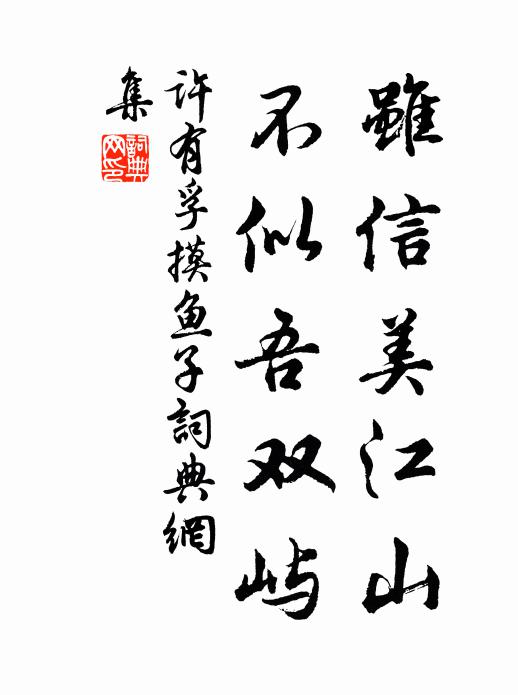 雖信美江山
不似吾双屿
许有孚摸鱼子詞典網
集
詞典网印